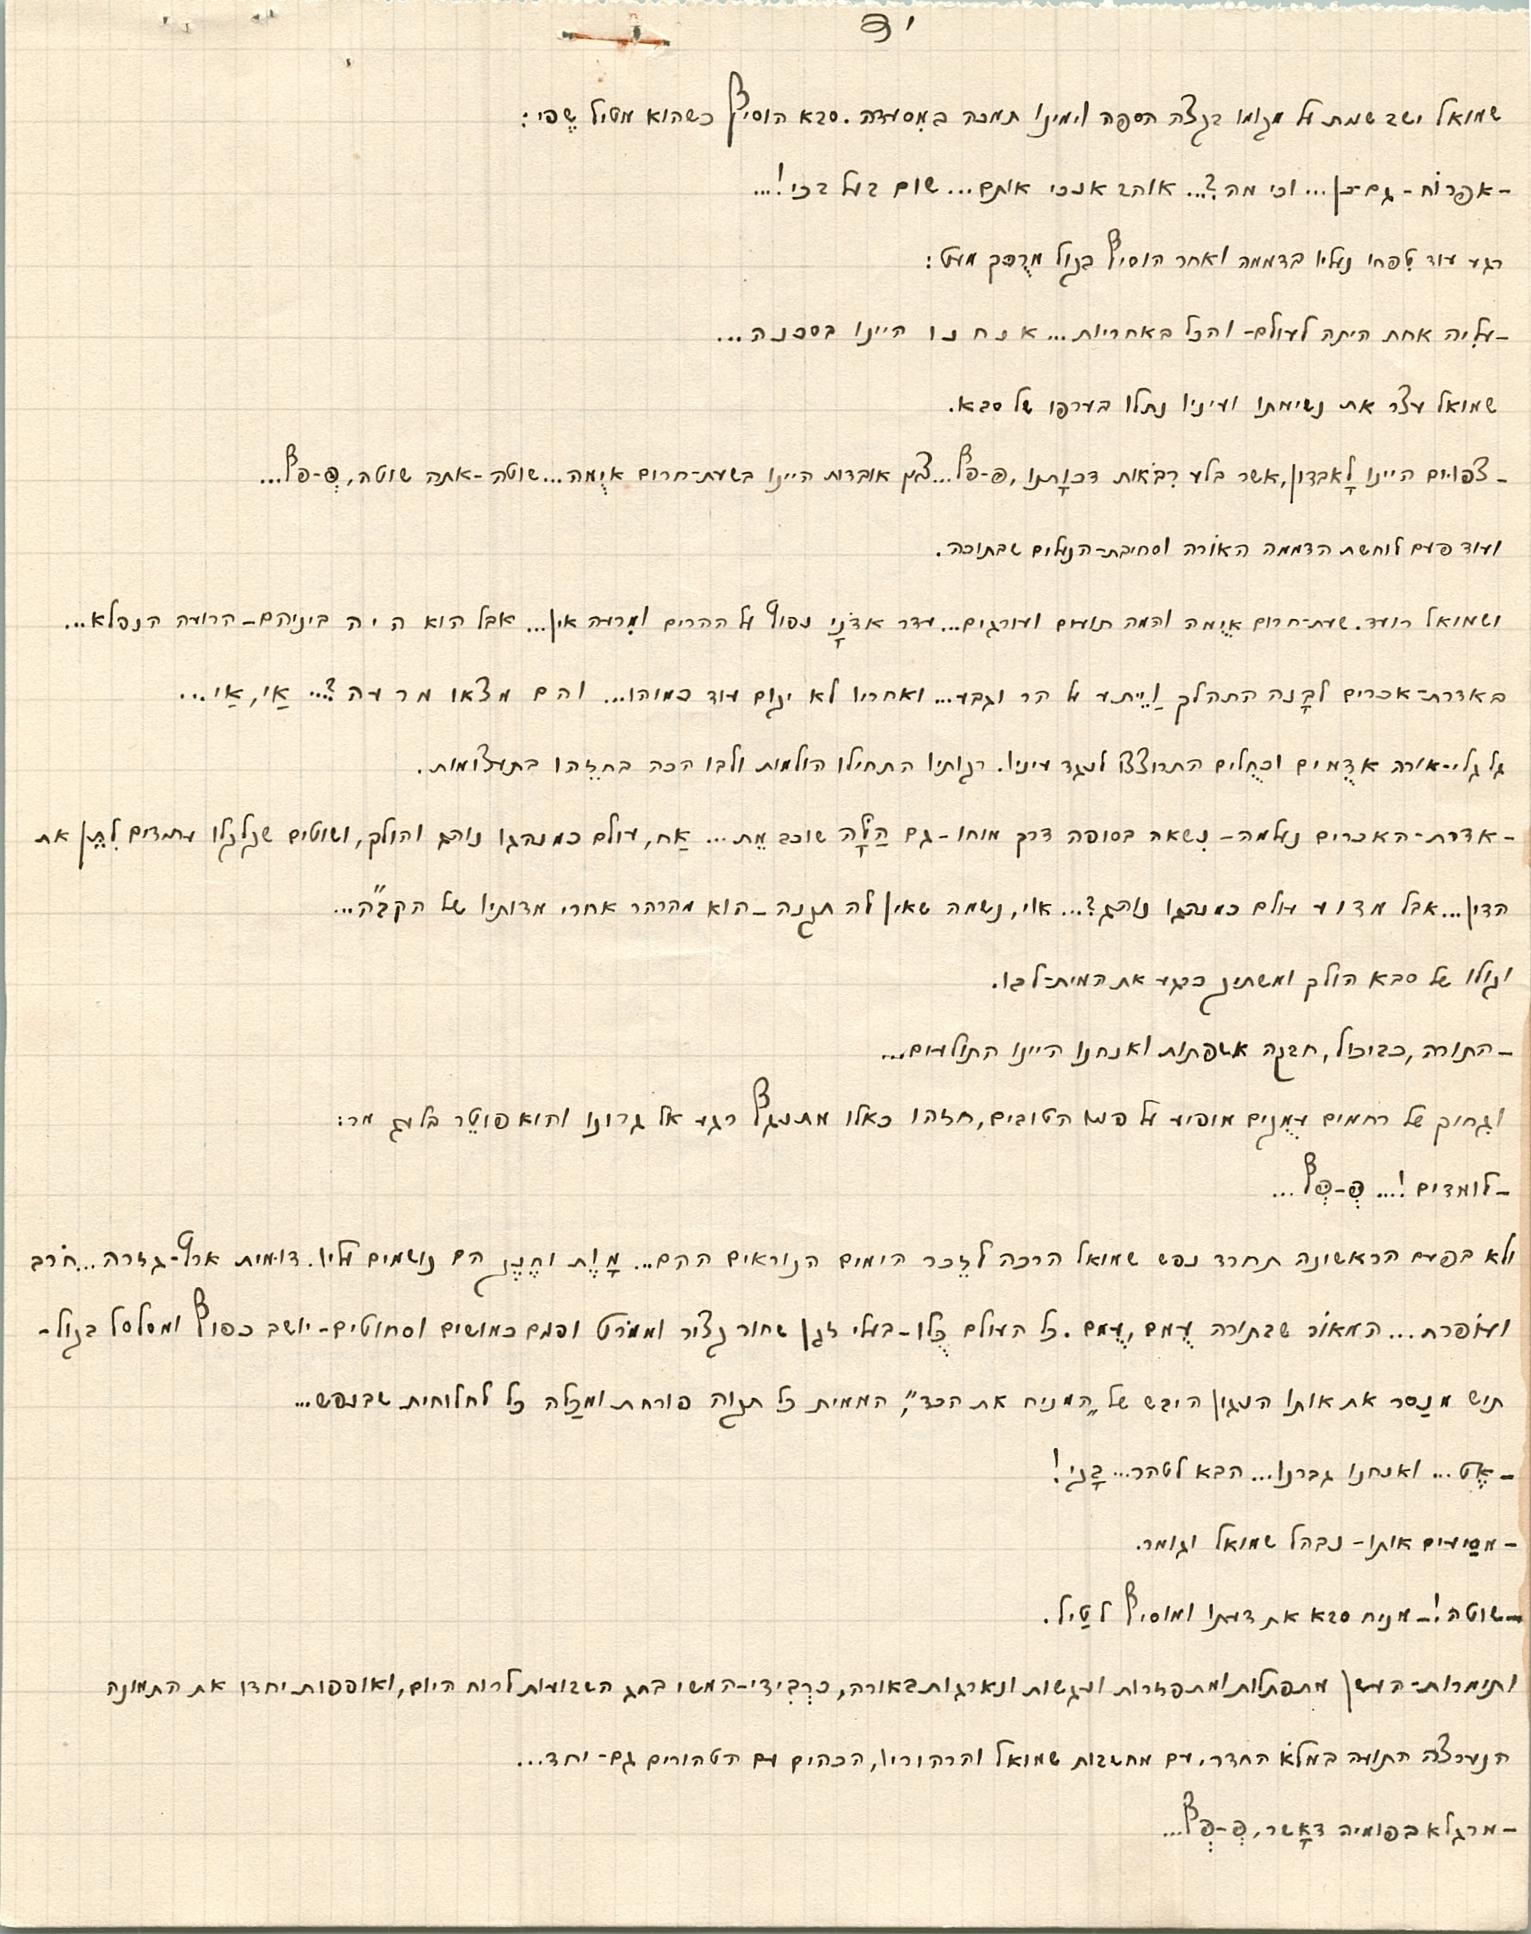 יד
שמואל ישב שמט על מקומו בקצה הספה וימינו תמכה במִסעדה. סבא הוסיף כשהוא מטיל שֶפי:
-אפּרוֹח-גם-כן... וכי מה?... אוהב אנכי אותם... שום בעל בכי!...
רגע עוד טִפחו נעליו בדממה ואחר הוסיף בקול מרֻכּך מעט:
-עלִיה אחת היתה לעולם- והכל באחריות... א נ ח נ ו היינו בסכנה...
שמואל עצר את נשימתו ועיניו נתלו בערפו של סבא.
-צפוּיים היינו לָאבדון, אשר בלע רִבֹּאות דכוָתנו, פּ-פף... צאן אובדות היינו בשעת-חרום איֻמה... שוטה-אתה שוטה, פְּ-פף...
ועוד פעם לוחשת הדממה האוֹרה וסחיבת-הנעלים שבתוכה.
ושמואל רועד. שעת-חרום איֻמה והמה תועים ועורגים... עדר אדֹנָי נפוץ על ההרים ומִרעה אין... אבל הוא ה י ה ביניהם- הרועה הנפלא...
באדרת-אכרים לבָנה התהלך וַיֵּיתע על הר וגבע... ואחריו לא יקום עוד כמוהו... והם מצאו מ ר ע ה?... אַי, אַי...
גלגלי-אורה אדֻמים וכחֻלים התרוצצו לנגד עיניו. רקותיו התחילו הולמות ולבו הכה בחזֵהו בתעצומות.
-אדרת-האכרים נעלמה- נִשאה בסופה דרך מוחו-גם הַלָּה שוכב מֵת... אַח, עולם כמנהגו נוהג והולך, ושוטים שקלקלו עתידים לִתֵּן את
הדין... אבל מ ד ו ע עולם כמנהגו נוהג?... אוי, נשמה שאין לה תקנה-הוא מהרהר אחרי מדותיו של הקב"ה...
וקולו של סבא הולך ומשתיק כרגע את המית-לבו.
-התורה, כביכול, חבקה אשפתות ואנחנו היינו התולעים...
וגִחוך של רחמים עמֻקים מופיע על פניו הטובים, חזהו כאלו מתנקף רגע אל גרונו והוא פוטֵר בלעג מר:
-לומדים!... פְּ-פְּף...
ולא בפעם הראשונה תחרד נפש שמואל הרכה לזֵכר הימים הנוראים ההם... מָוֶת וחֶנֶק הם נושמים עליו. דוּמית ארץ-גזרה... חֹרב
ועוֹפרת... המאוֹר שבתורה עֻמם, עֻמם. כל העולם כֻּלו-בעלי זקן שחור קצוּר וממֹרט ופנים כמושים וסחוטים-יושב כפוף ומסלסל בקול-
תיש מנַסר את אותו הנִגון היבש של „המניח את הכד”, הממית כל תקוה פורחת ומכַלה כל לחלוחית שבנפש...
-אֶט... ואנחנו גברנו... הבא לטהר... בָּני!
-מסַיעים אותו- נבהל שמואל וגומר.
-שוטה!- מניח סבא את דעתו ומוסיף לטַיל.
ותימרות-העשן מתפתלות ומתפזרות ועגשות ונארגות באורה, כרְבידי-המשי בחג השבועות לרוח היום, ואופפות יחדו את התמונה
הנערצה התועה במלֹא החדר, עם מחשבות שמואל והרהוריו, הכהים עם הטהורים גם-יחד...
-מרגלא בפומיה דאָשר, פְּ-פְּף...